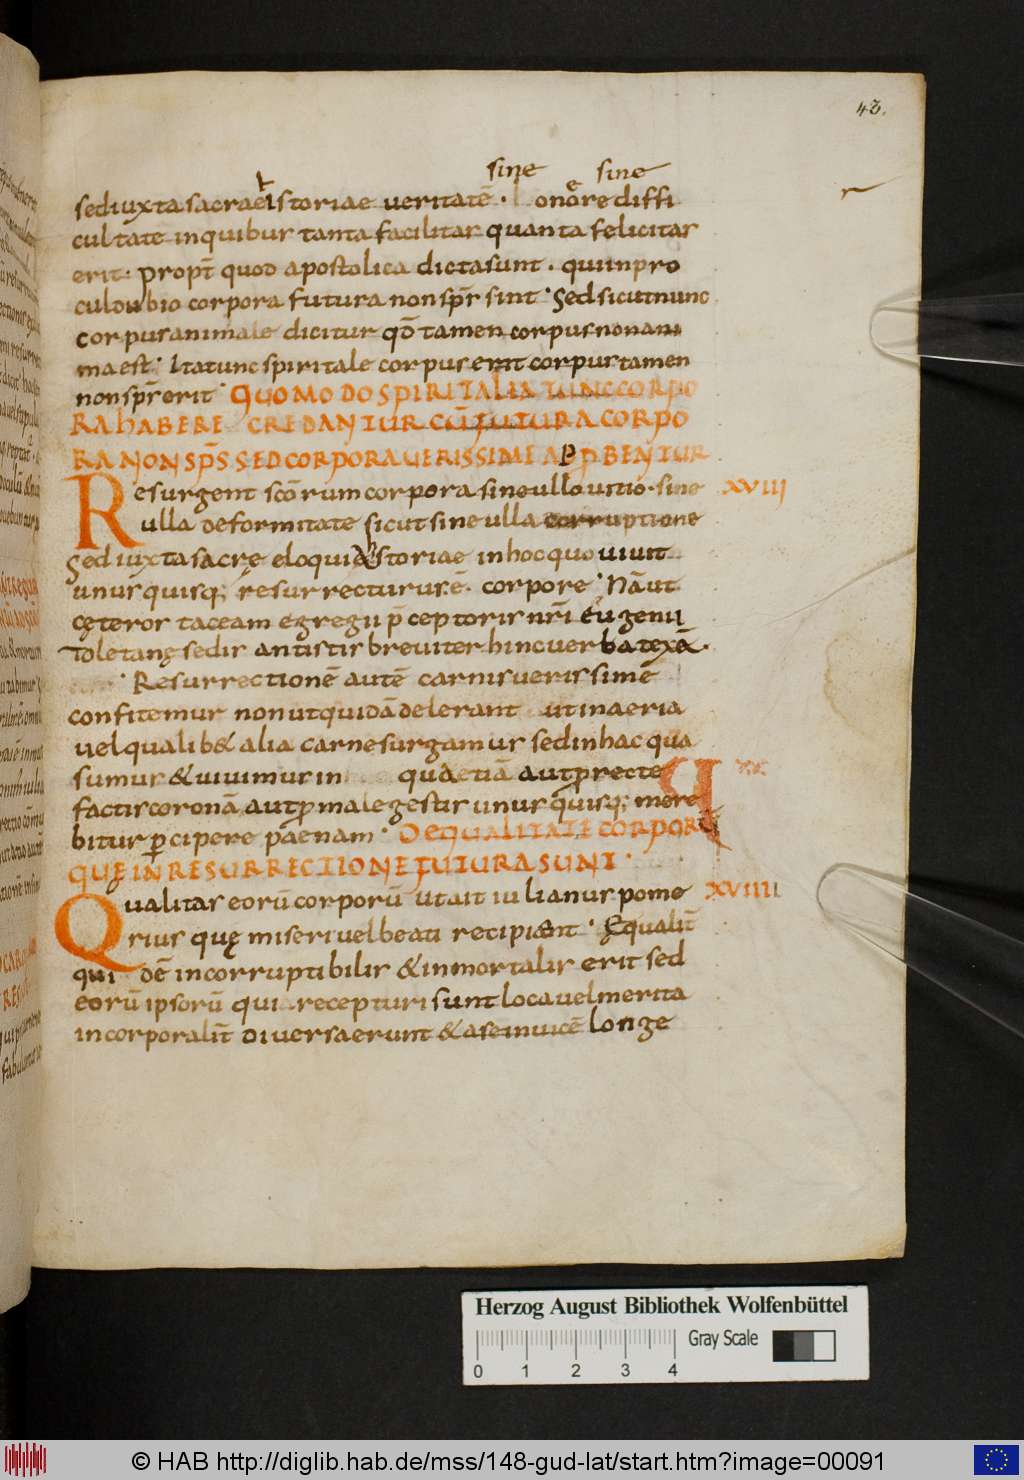 43.
sine sine
sed iuxta sacrae istoriae veritatē · onore diffi
cultate in quibus tanta facilitas quanta felicitas
erit · propt̄ quod apostolica dicta sunt · qui in pro
cul dubio corpora futura non sp̄s sint · Sed sicut nunc
corpus animale dicitur qd̄ tamen corpus non ani
ma est · Ita tunc spiritale corpus erit corpus tamen
non sp̄s erit · QUOMODO SPIRITALIA TUNC CORPO
RA HABERE CREDANTUR CŪ FUTURA CORPO
RA NON SP̄S SED CORPORA VERISSIME A P̱BENTUR
Resurgent scōrum corpora sine ullo vitio · sine XVIII
ulla deformitate sicut sine ulla corruptione
Sed iuxta sacrę eloquia storiae in hoc quo vivit
unusquisq; resurrecturus ē · corpore · Nā ut
cęteros taceam egregii p̄ceptoris nr̄i Eugenii
Toletanę sedis antistis breviter hinc verba texā ·
Resurrectionē autē carnis verissimē
confitemur non ut quida delerant ut in aeria
vel qualib& alia carne surgamur sed in hac qua
sumus & vivimus in qua etiā aut pro recte
factis coronā aut pro male gestis unusquisq; mere
bitur p̱cipere paenam · DE QUALITATE CORPOR
QUE IN RESURRECTIONE FUTURA SUNT ·
Qualitas eorū corporū ut ait iulianus pome XVIIII
rius quę miseri vel beati recipient · Ęqualit̄
qui dē incorruptibilis & inmortalis erit sed
eorū ipsorū qui recepturi sunt loca vel merita
in corporalit̄ diversa erunt & a se invicē longe
Herzog August Bibliothek Wolfenbüttel
Gray Scale
0 1 2 3 4
© HAB http://diglib.hab.de/mss/148-gud-lat/start.htm?image=00091